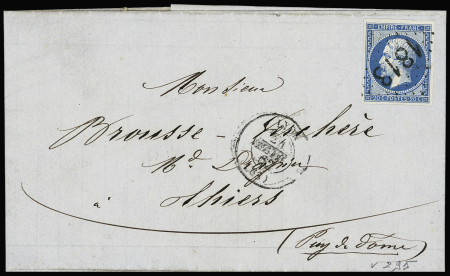 EMPIRE FRANC
1818
20 C. POSTES 20 C.
Monsieur
Brousse - Terchère
Md Drapier
à Thiers
(Puy de Dome)
(68)
v 295